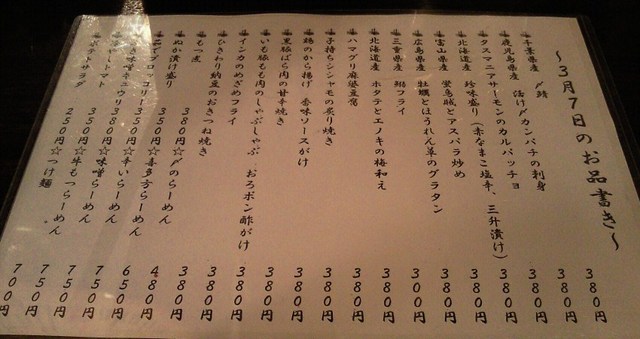 ～3月7日のお品書き～
千葉県産 〆鯖 380円
鹿児島県産 活け〆カンパチの刺身 380円
タスマニアサーモンのカルパッチョ 380円
北海道産 珍味盛り(赤なまこ塩辛、三升漬け) 380円
富山県産 蛍烏賊とアスパラ炒め 380円
広島県産 牡蠣とほうれん草のグラタン 380円
三重県産 鰯フライ 300円
北海道産 ホタテとエノキの梅和え 380円
ハマグリ麻婆豆腐 380円
子持ちシシャモの炙り焼き 380円
鶏のから揚げ 香味ソースがけ 380円
黒豚ばら肉の甘辛焼き 380円
いも豚もも肉のしゃぶしゃぶ、おろポン酢がけ 380円
インカのめざめフライ 380円
ひきわり納豆のおきつね焼き 380円
もつ煮 380円
ぬか漬け盛り 380円☆〆のらーめん 480円
でブロッコリー 350円☆喜多方らーめん 650円
味噌キュウリ 380円☆辛いらーめん 750円
トマト 350円☆味噌らーめん 750円
ポテトサラダ 250円☆牛もつらーめん 750円
☆つけ麺 700円